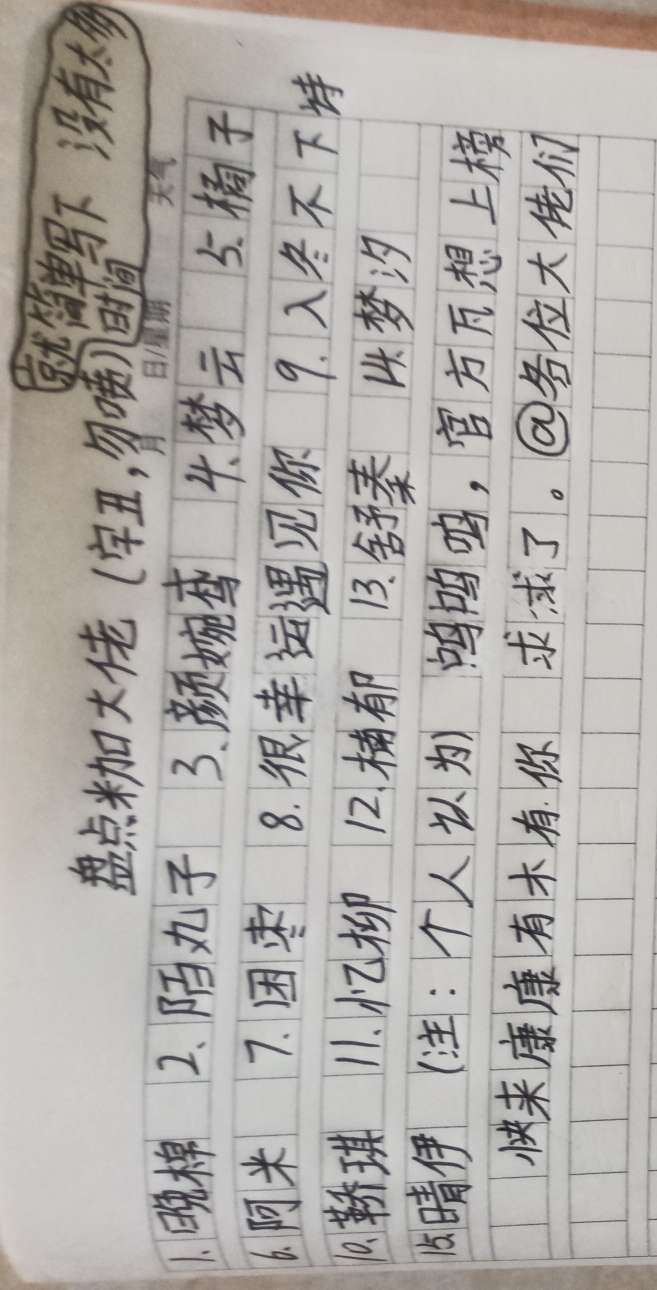 就简单写下 没有太多时间
盘点米加大佬（字丑，勿喷）
月 日/星期 天气
1.晚棉 2、陌丸子 3、颜婉莺 4、梦云 5、橘子
6.阿米 7.困枣 8.很幸运遇见你 9.入冬不下诗
10.鞒琪 11.忆柳 12.楠郁 13.舒蓁 14.梦汐
15.晴伊 （注：个人以为） 呜呜呜，官方瓦想上榜
快来康康有木有你 求求了。@各位大佬们